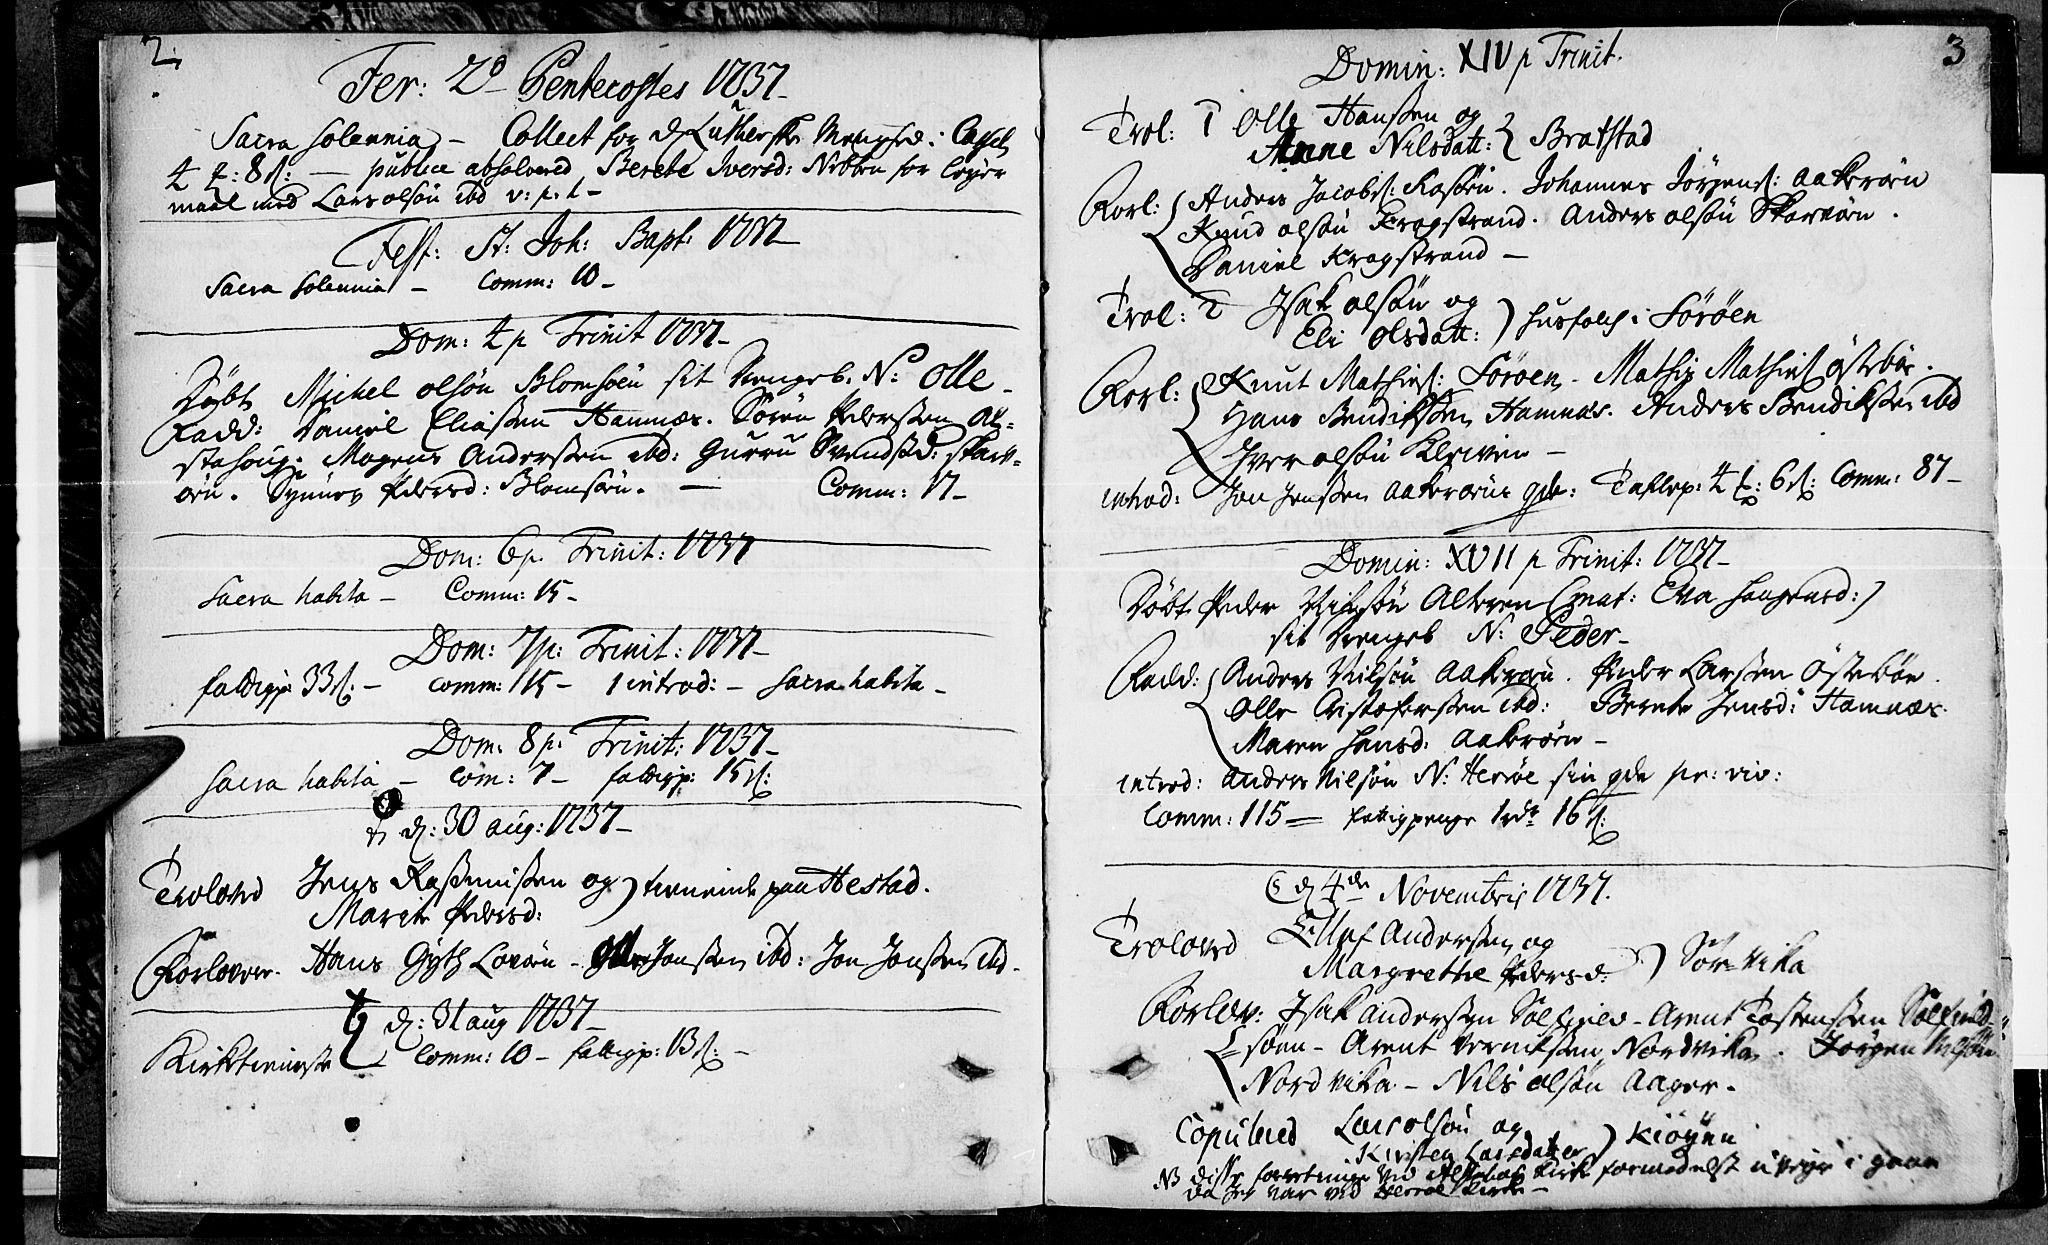 2.
Fer: 2d Pentecostes 1737
Sacra Solennia – Collect for d Lutherske Menighed i Cassel
4 ƶ: 8 ß: – publice absolvered Berete Iversd: Nibben for leyer
maal med Lars olsøn ibd v: p. t –
Fest: St: Joh: Bapt: 1737
Sacra Solennia – Comm: 10 –
Dom: 4 p Trinit 1737 –
Døbt Michel olsøn Blomsøen sit drengeb. N: Olle –
Fadd: Daniel Eliassen Hamnæs. Søren Pederssen Al=
stahoug. Mogens Anderssen ibd: Gurru Svendsd: Skarv=
øen. Synnev Pedersd: Blomsøen. – Comm: 17 –
Dom: 6 p. Trinit: 1737
Sacra habita – Comm: 15 –
Dom: 7 p: Trinit: 1737 –
fattigp: 33 ß: – Comm: 115 – 1 introd: – Sacra habita –
Dom: 8 p: Trinit: 1737 –
Sacra habita – Com: 7 – fattigp: 15 ß:
d: 30 aug: 1737 –
Troloved Jens Rasmussen og ) tienende paa Hestad.
Marit Pedersd:
Forlover. Hans Gyth Lovøen – Jonssen ibd: Jon Jonssen ibd.
d: 31 aug 1737 –
Kirktieniste Comm: 10 – fattigp: 13 ß: –
3
Domin: XIV p Trinit.
Trol: 1 Olle Hanssen og
Anne Nilsdatt: } Bratstad
Forl: Anders Jacobs: Rosøen. Johannes Jørgens: Aakerøen
Knud olsøn Kragstrand. Anders olsøn Skarvøen.
Daniel Kragstrand –
Trol: 2 Isak olsøn og
Eli Olsdatt: ) husfolch i Sørøen
Forl: Knut Mathias: Sørøen – Mathis Mathias: Østebøe.
Hans Bendikssen Hamnæs. Anders Bendikssen ibd
Iver olsøn Kleiven –
introd: Jon Jenssen Aakerøens qde: Taflep: 4 ƶ: 6 ß: Comm: 87 –
Domin: XVII p Trinit: 1737 –
Døbt Peder Nilssøn Alteren (mat: Eva Haagensd:)
sit drengeb N: Peder –
Fadd: Anders Nilssøn Aakerøen. Peder Larssen Østebøe.
Olle Christoferssen ibd: Berete Jensd: Hamnæs.
Maren Hansd: Aakerøen –
introd: Anders Nilsøn N: Herrøe sin qde pr: viv:
Comm: 115 = fattigpenge 1 rdr 16 ß:
d 4de Novembris 1737.
Troloved Ellef Anderssen og
Margrethe Pedersd: ) Sør-vika
Forlov: Isak Anderssen Sølfield – Arent Tostenssen Sølfield
søen – Arent Vernikssen Nordvika. Jørgen Nilssøn
Nordvika – Nils olsøn Aager.
Copulered Lars olsøn og
Kirsten Larsdatter ) Kiøyen
NB disse forretninger ved Alstahoug Kirke formedelst u veyr i gaar
da jeg var ved Herrøe Kirke –